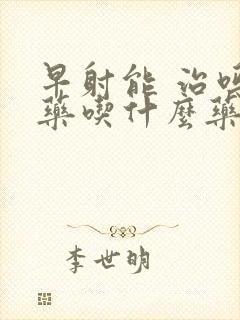 早射能 治嗎
藥喫什麼藥
李世明